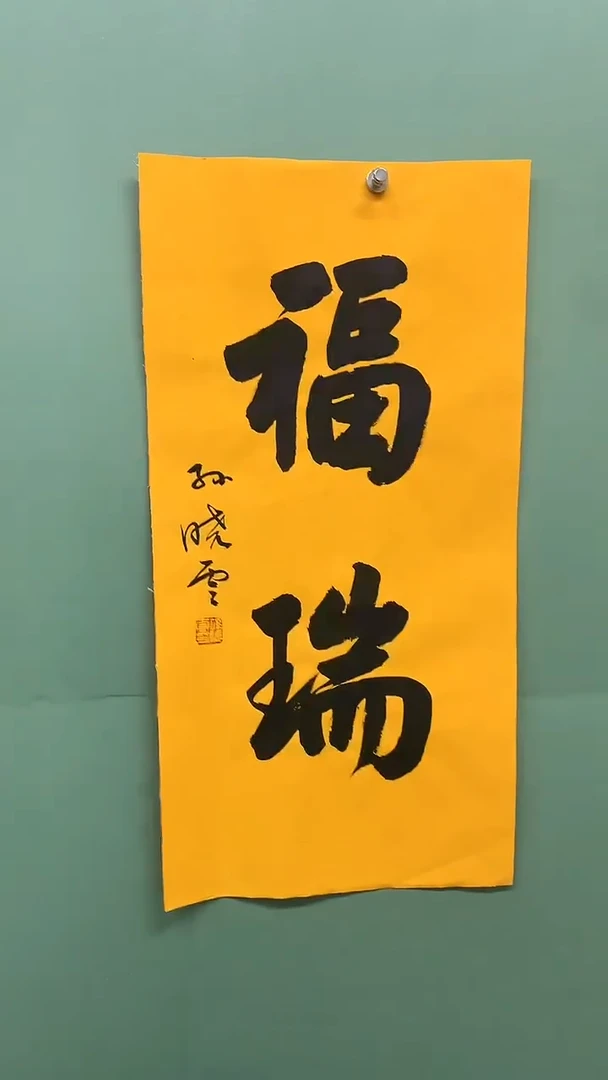 福瑞
孙晓雲